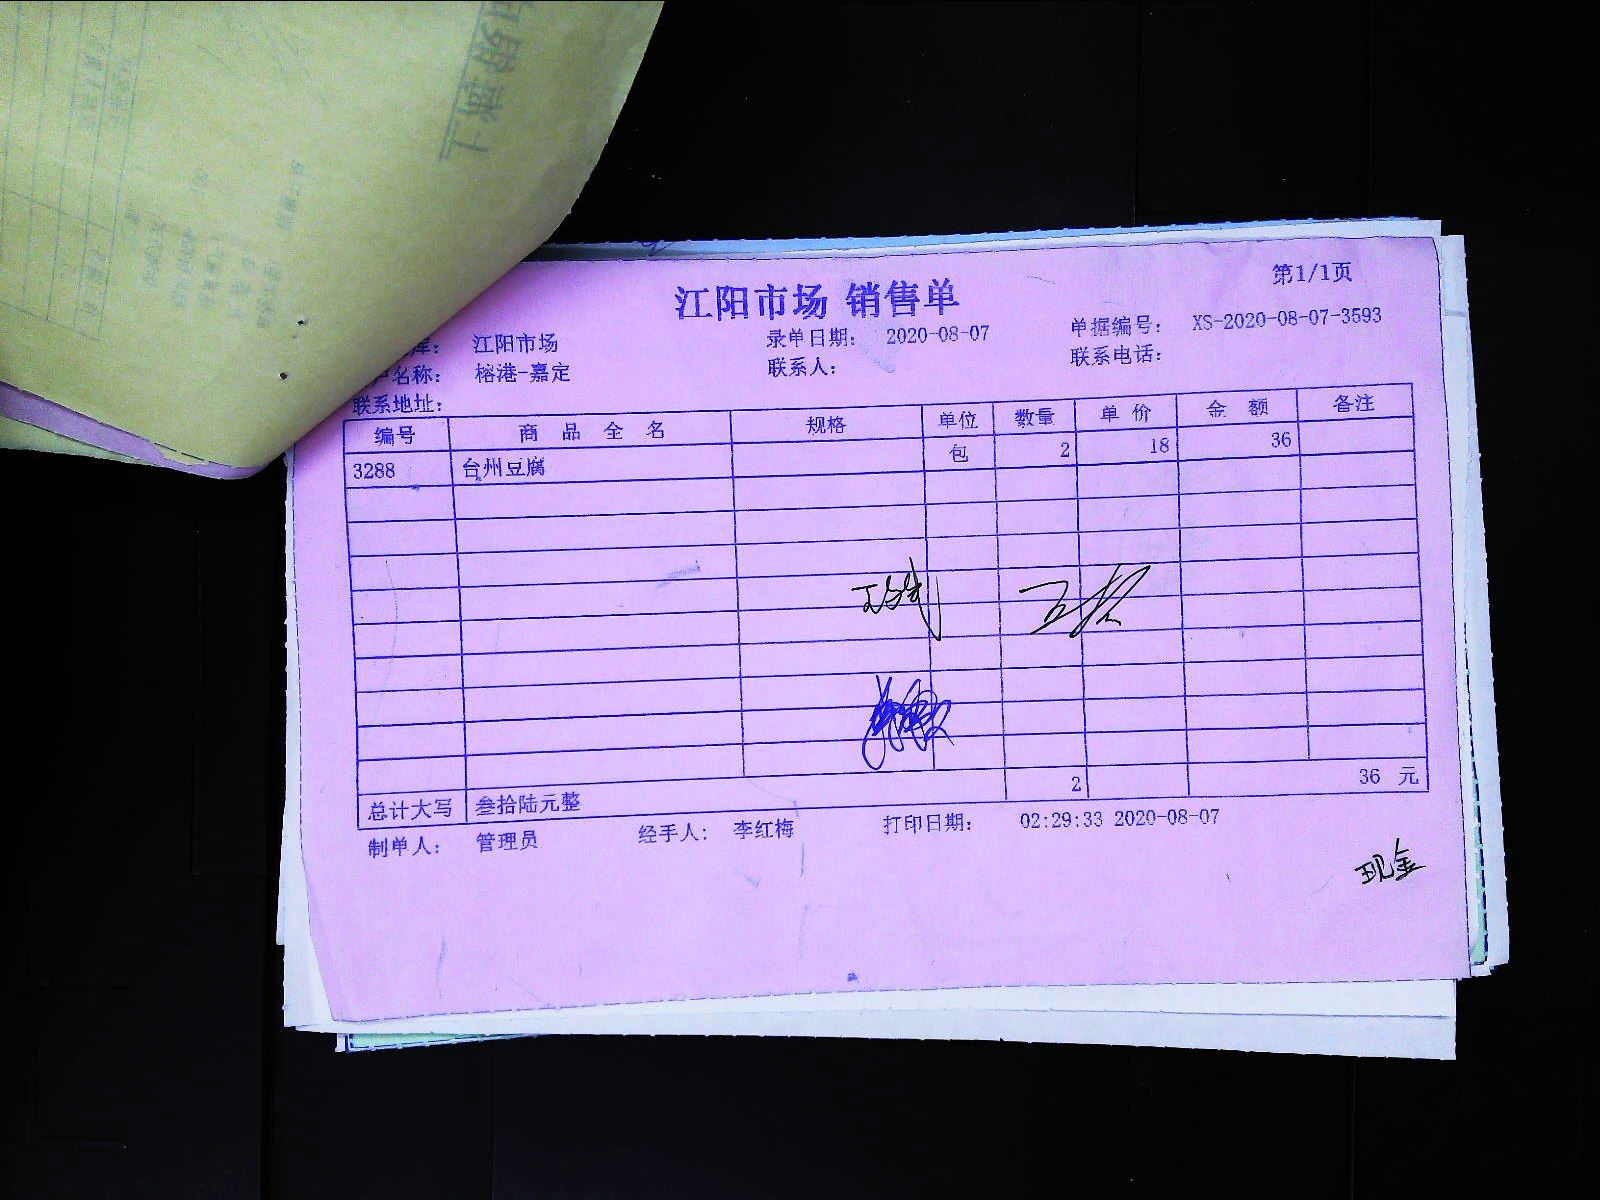 第1/1页
江阳市场 销售单
库： 江阳市场 录单日期： 2020-08-07 单据编号： XS-2020-08-07-3593
户名称： 榕港-嘉定 联系人： 联系电话：
联系地址：
编号 商品全名 规格 单位 数量 单价 金额 备注
3288 台州豆腐 包 2 18 36
总计大写 叁拾陆元整 2 36 元
制单人： 管理员 经手人： 李红梅 打印日期： 02:29:33 2020-08-07
现金